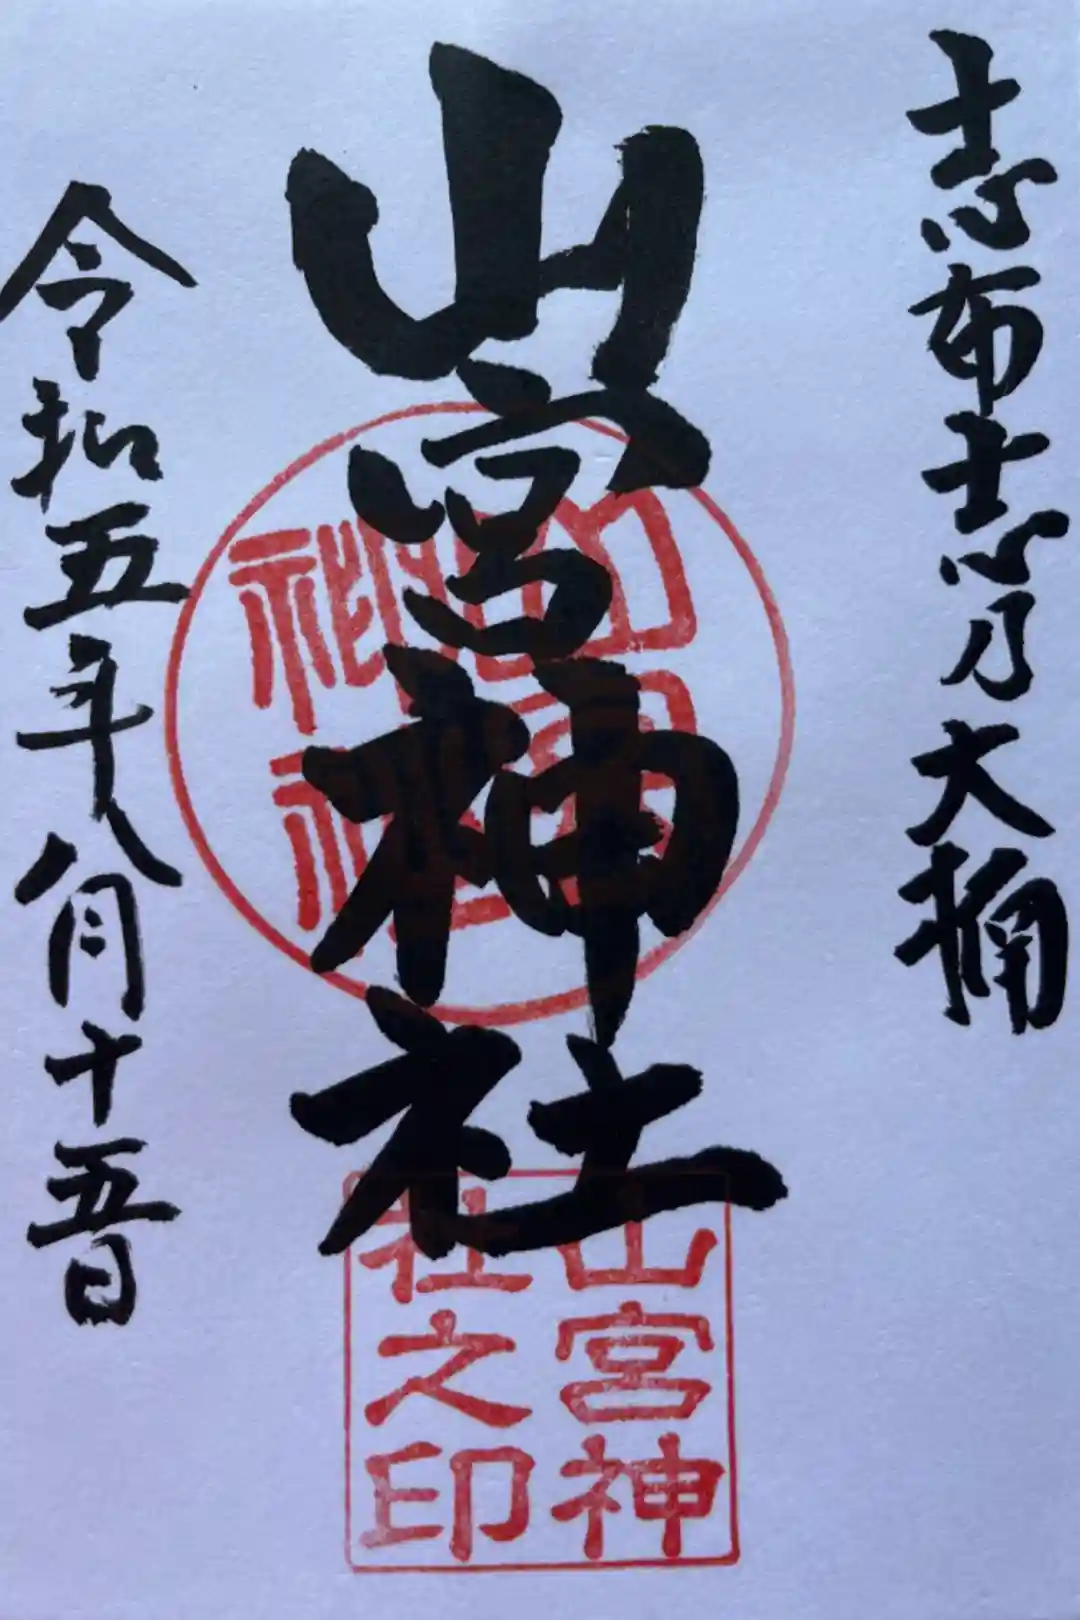 志布志乃大楠
山宮神社
令和五年八月十五日
山宮
神社
山宮神
社之印